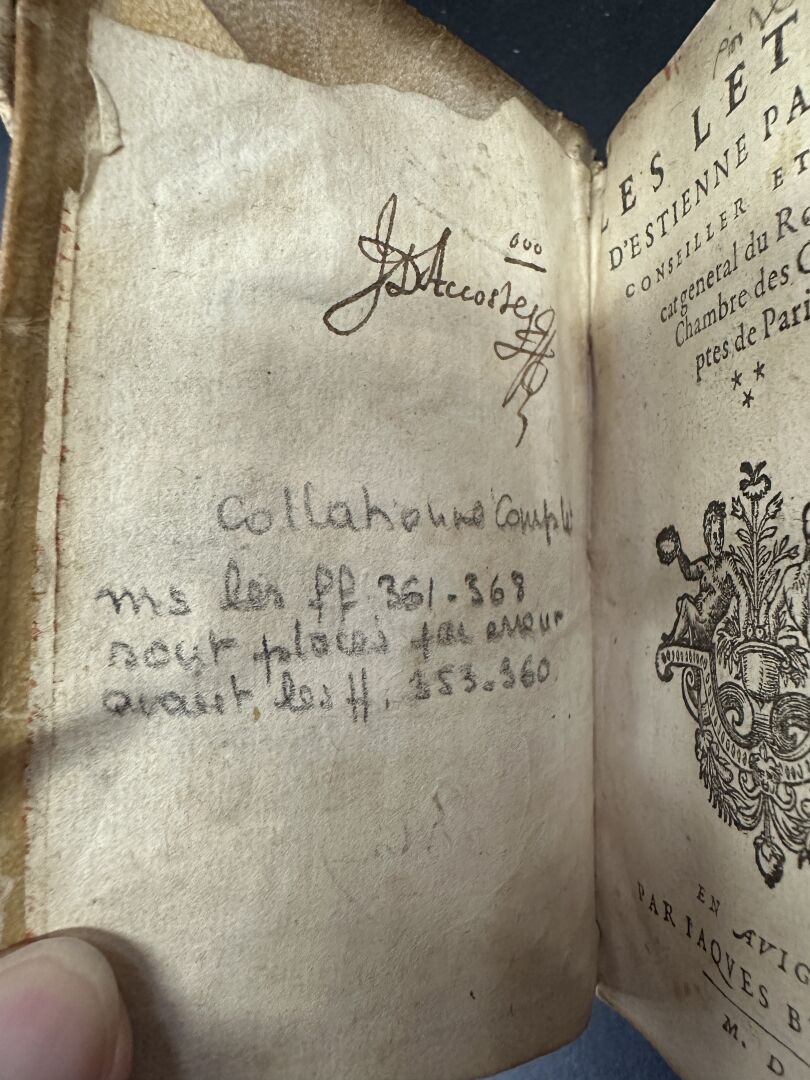 ooo
J DAccostes
Collationné Complet
ms les ff 361.368
sont placés par erreur
avant les ff. 353.360
LES LET
D'ESTIENNE PA
CONSEILLER ET
cat general du Ro
Chambre des C
ptes de Pari
EN AVIG
PAR IAQVES B
M. D